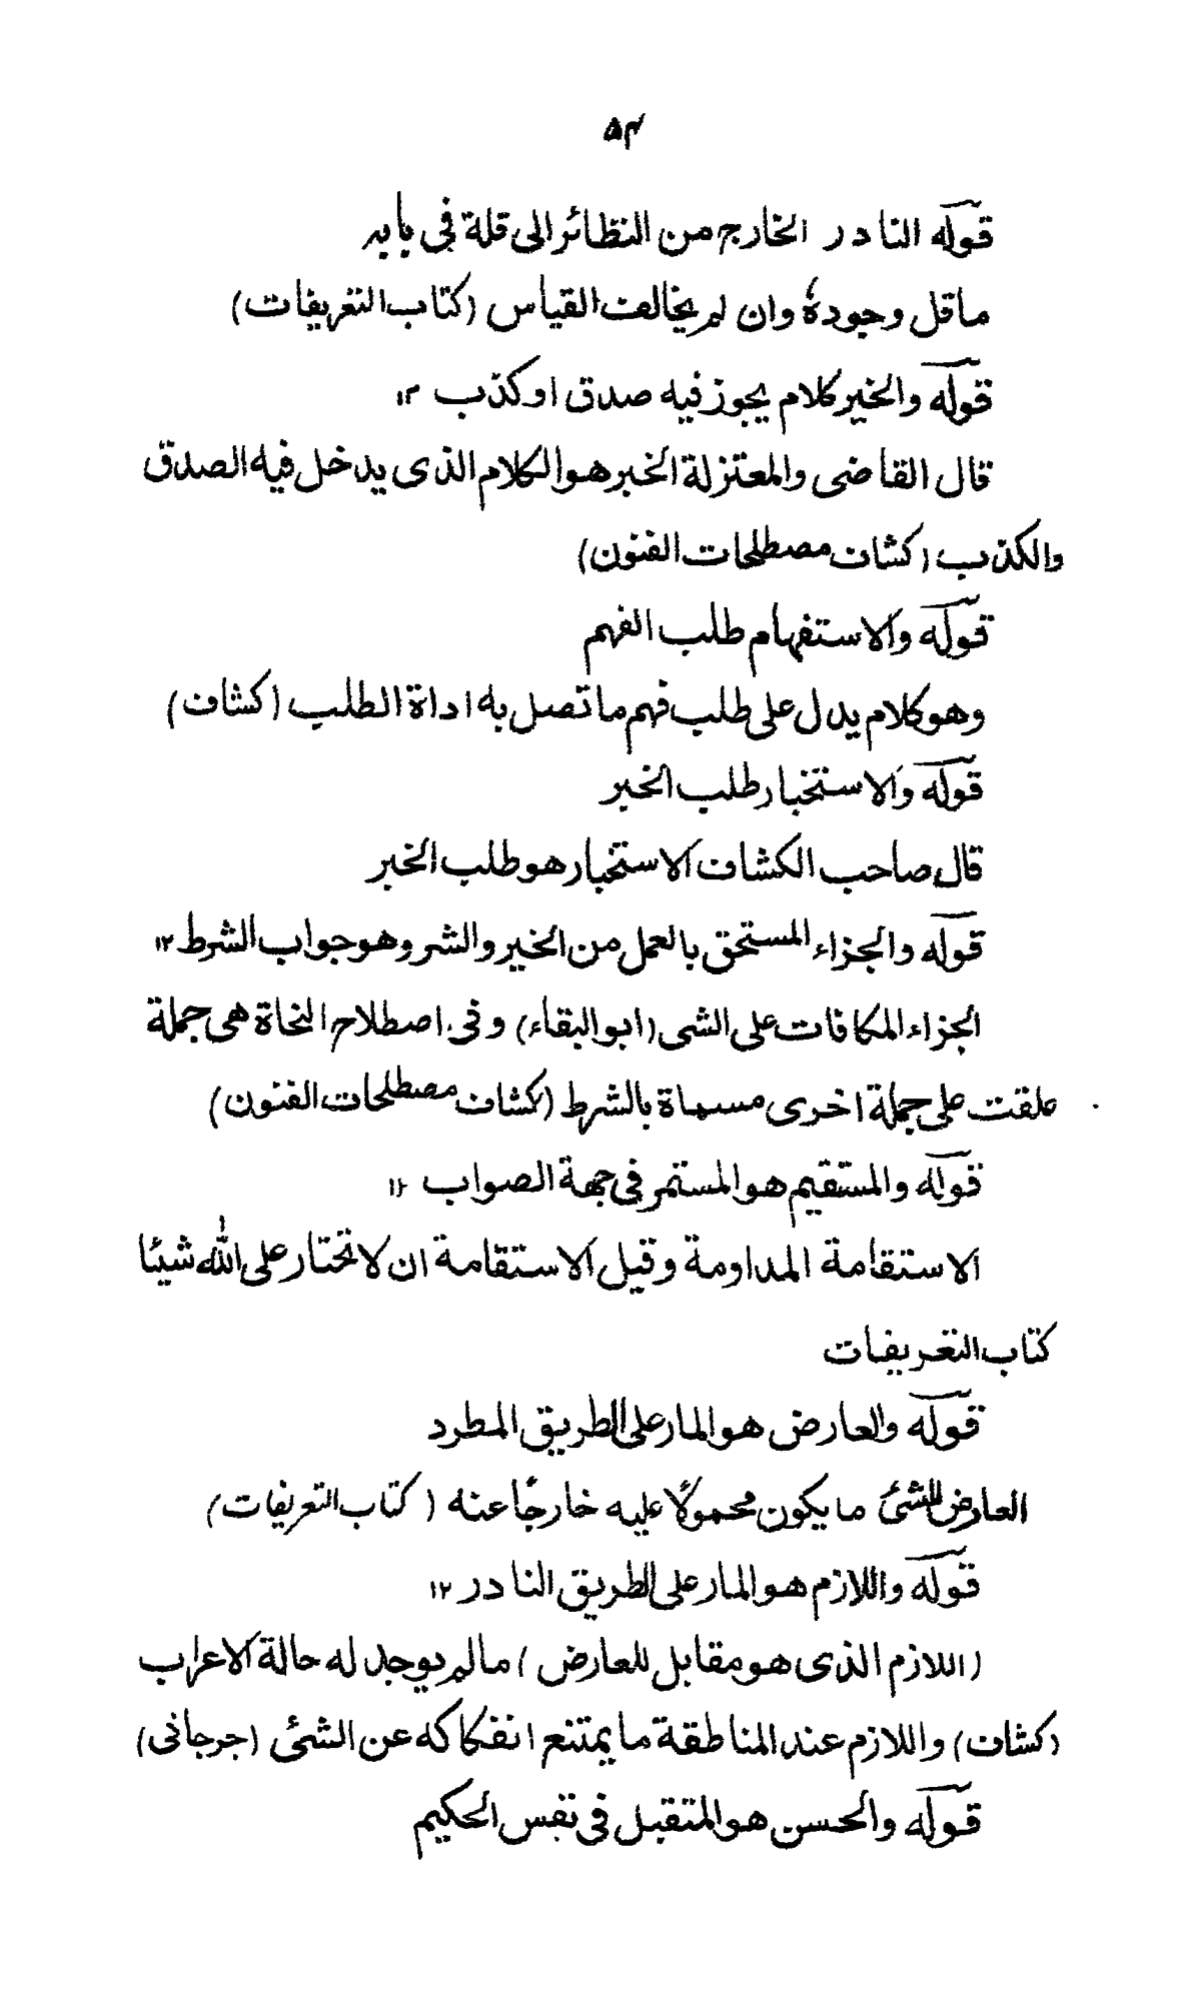 ۵۴
قوله النادر الخارج من النظائر الى قلة فى بابه
ماقل وجودهٗ وان لم يخالف القياس (كتاب التعريفات)
قوله والخبر كلام يجوز فيه صدق او كذب ۱۲
قال القاضى والمعتزلة الخبر هو الكلام الذى يدخل فيه الصدق
والكذب (كشاف مصطلحات الفنون)
قوله والاستفهام طلب الفهم
وهو كلام يدل على طلب فهم ما تصل به اداة الطلب (كشاف)
قوله والاستخبار طلب الخبر
قال صاحب الكشاف الاستخبار هو طلب الخبر
قوله والجزاء المستحق بالعمل من الخير والشر وهو جواب الشرط ۱۲
الجزاء المكافات على الشى (ابو البقاء) وفى اصطلاح النحاة هى جملة
علقت على جملة اخرى مسماة بالشرط (كشاف مصطلحات الفنون)
قوله والمستقيم هو المستمر فى جهة الصواب ۱۲
الاستقامة المداومة وقيل الاستقامة ان لا تختار على الله شيئا
كتاب التعريفات
قوله والعارض هو المار على الطريق المطرد
العارض للشئ ما يكون محمولًا عليه خارجًا عنه (كتاب التعريفات)
قوله واللازم هو المار على الطريق النادر ۱۲
(اللازم الذى هو مقابل للعارض) مالم يوجد له حالة الاعراب
(كشاف) واللازم عند المناطقة ما يمتنع انفكاكه عن الشئ (جرجانى)
قوله والحسن هو المتقبل فى نفس الحكيم